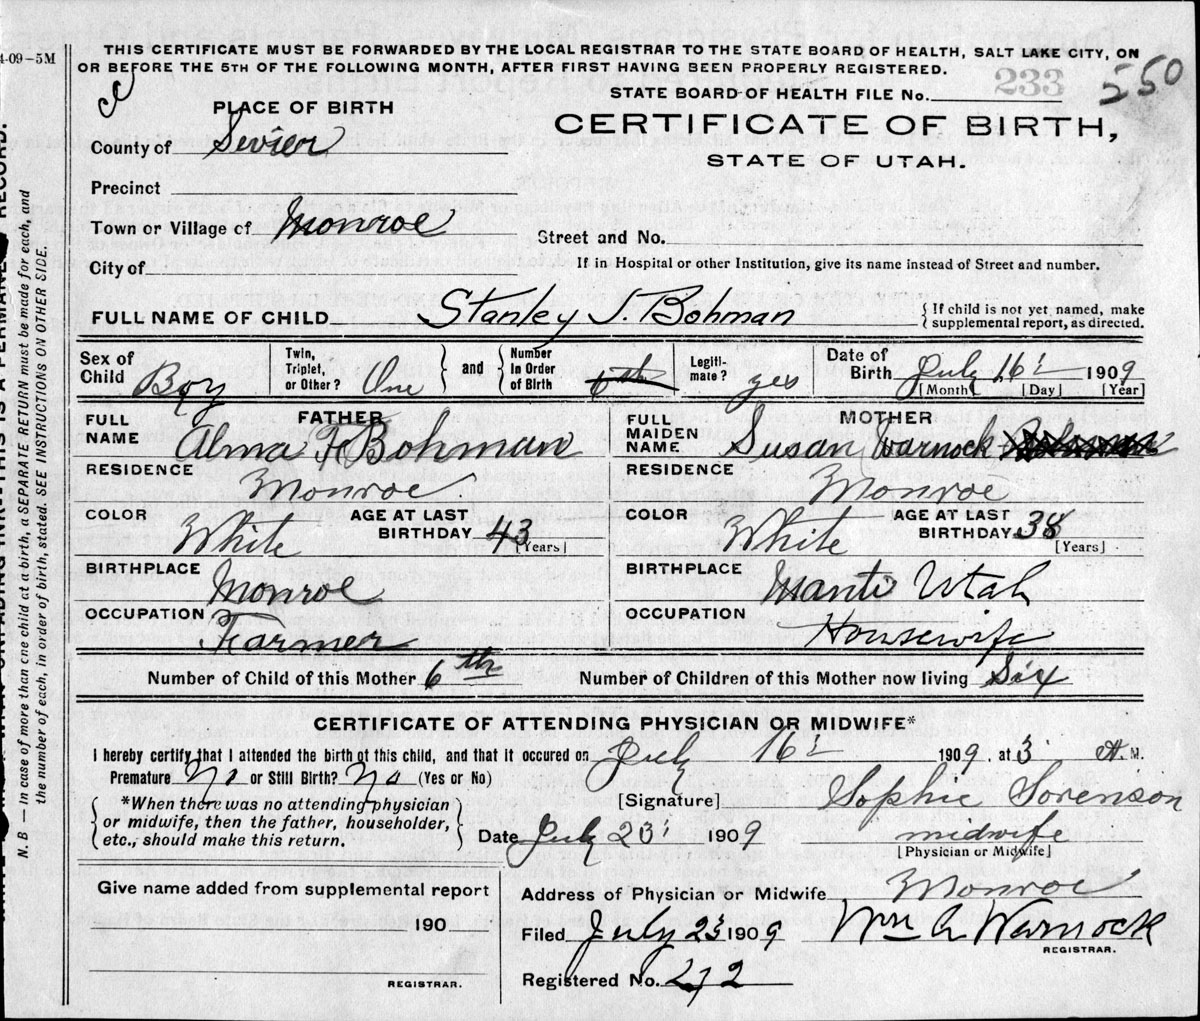 4-09-5M
THIS CERTIFICATE MUST BE FORWARDED BY THE LOCAL REGISTRAR TO THE STATE BOARD OF HEALTH, SALT LAKE CITY, ON
OR BEFORE THE 5TH OF THE FOLLOWING MONTH, AFTER FIRST HAVING BEEN PROPERLY REGISTERED.
STATE BOARD OF HEALTH FILE No. 233 550
PLACE OF BIRTH
CERTIFICATE OF BIRTH,
STATE OF UTAH.
County of Sevier
Precinct
Town or Village of Monroe
Street and No.
City of
If in Hospital or other Institution, give its name instead of Street and number.
FULL NAME OF CHILD Stanley J. Bohman
If child is not yet named, make
supplemental report, as directed.
Sex of
Child Boy
Twin,
Triplet,
or Other? One
and
Number
in Order
of Birth 6th
Legiti-
mate? yes
Date of
Birth July 16 1909
[Month] [Day] [Year]
FATHER
FULL
NAME Alma F Bohman
MOTHER
FULL
MAIDEN
NAME Susan Warnock
RESIDENCE
Monroe
RESIDENCE
Monroe
COLOR
White
AGE AT LAST
BIRTHDAY 43
[Years]
COLOR
White
AGE AT LAST
BIRTHDAY 38
[Years]
BIRTHPLACE
Monroe
BIRTHPLACE
Manti Utah
OCCUPATION
Farmer
OCCUPATION
Housewife
Number of Child of this Mother 6th
Number of Children of this Mother now living Six
CERTIFICATE OF ATTENDING PHYSICIAN OR MIDWIFE*
I hereby certify that I attended the birth of this child, and that it occured on July 16 1909, at 3 A M.
Premature No or Still Birth? No (Yes or No)
*When there was no attending physician
or midwife, then the father, householder,
etc., should make this return.
[Signature] Sophie Sorenson
Date July 23 1909
midwife
[Physician or Midwife]
Give name added from supplemental report
190
REGISTRAR.
Address of Physician or Midwife Monroe
Filed July 23 1909
Wm A Warnock
REGISTRAR.
Registered No. 272
N. B — In case of more than one child at a birth, a SEPARATE RETURN must be made for each, and
the number of each, in order of birth, stated. SEE INSTRUCTIONS ON OTHER SIDE.
THIS IS A PERMANENT RECORD.